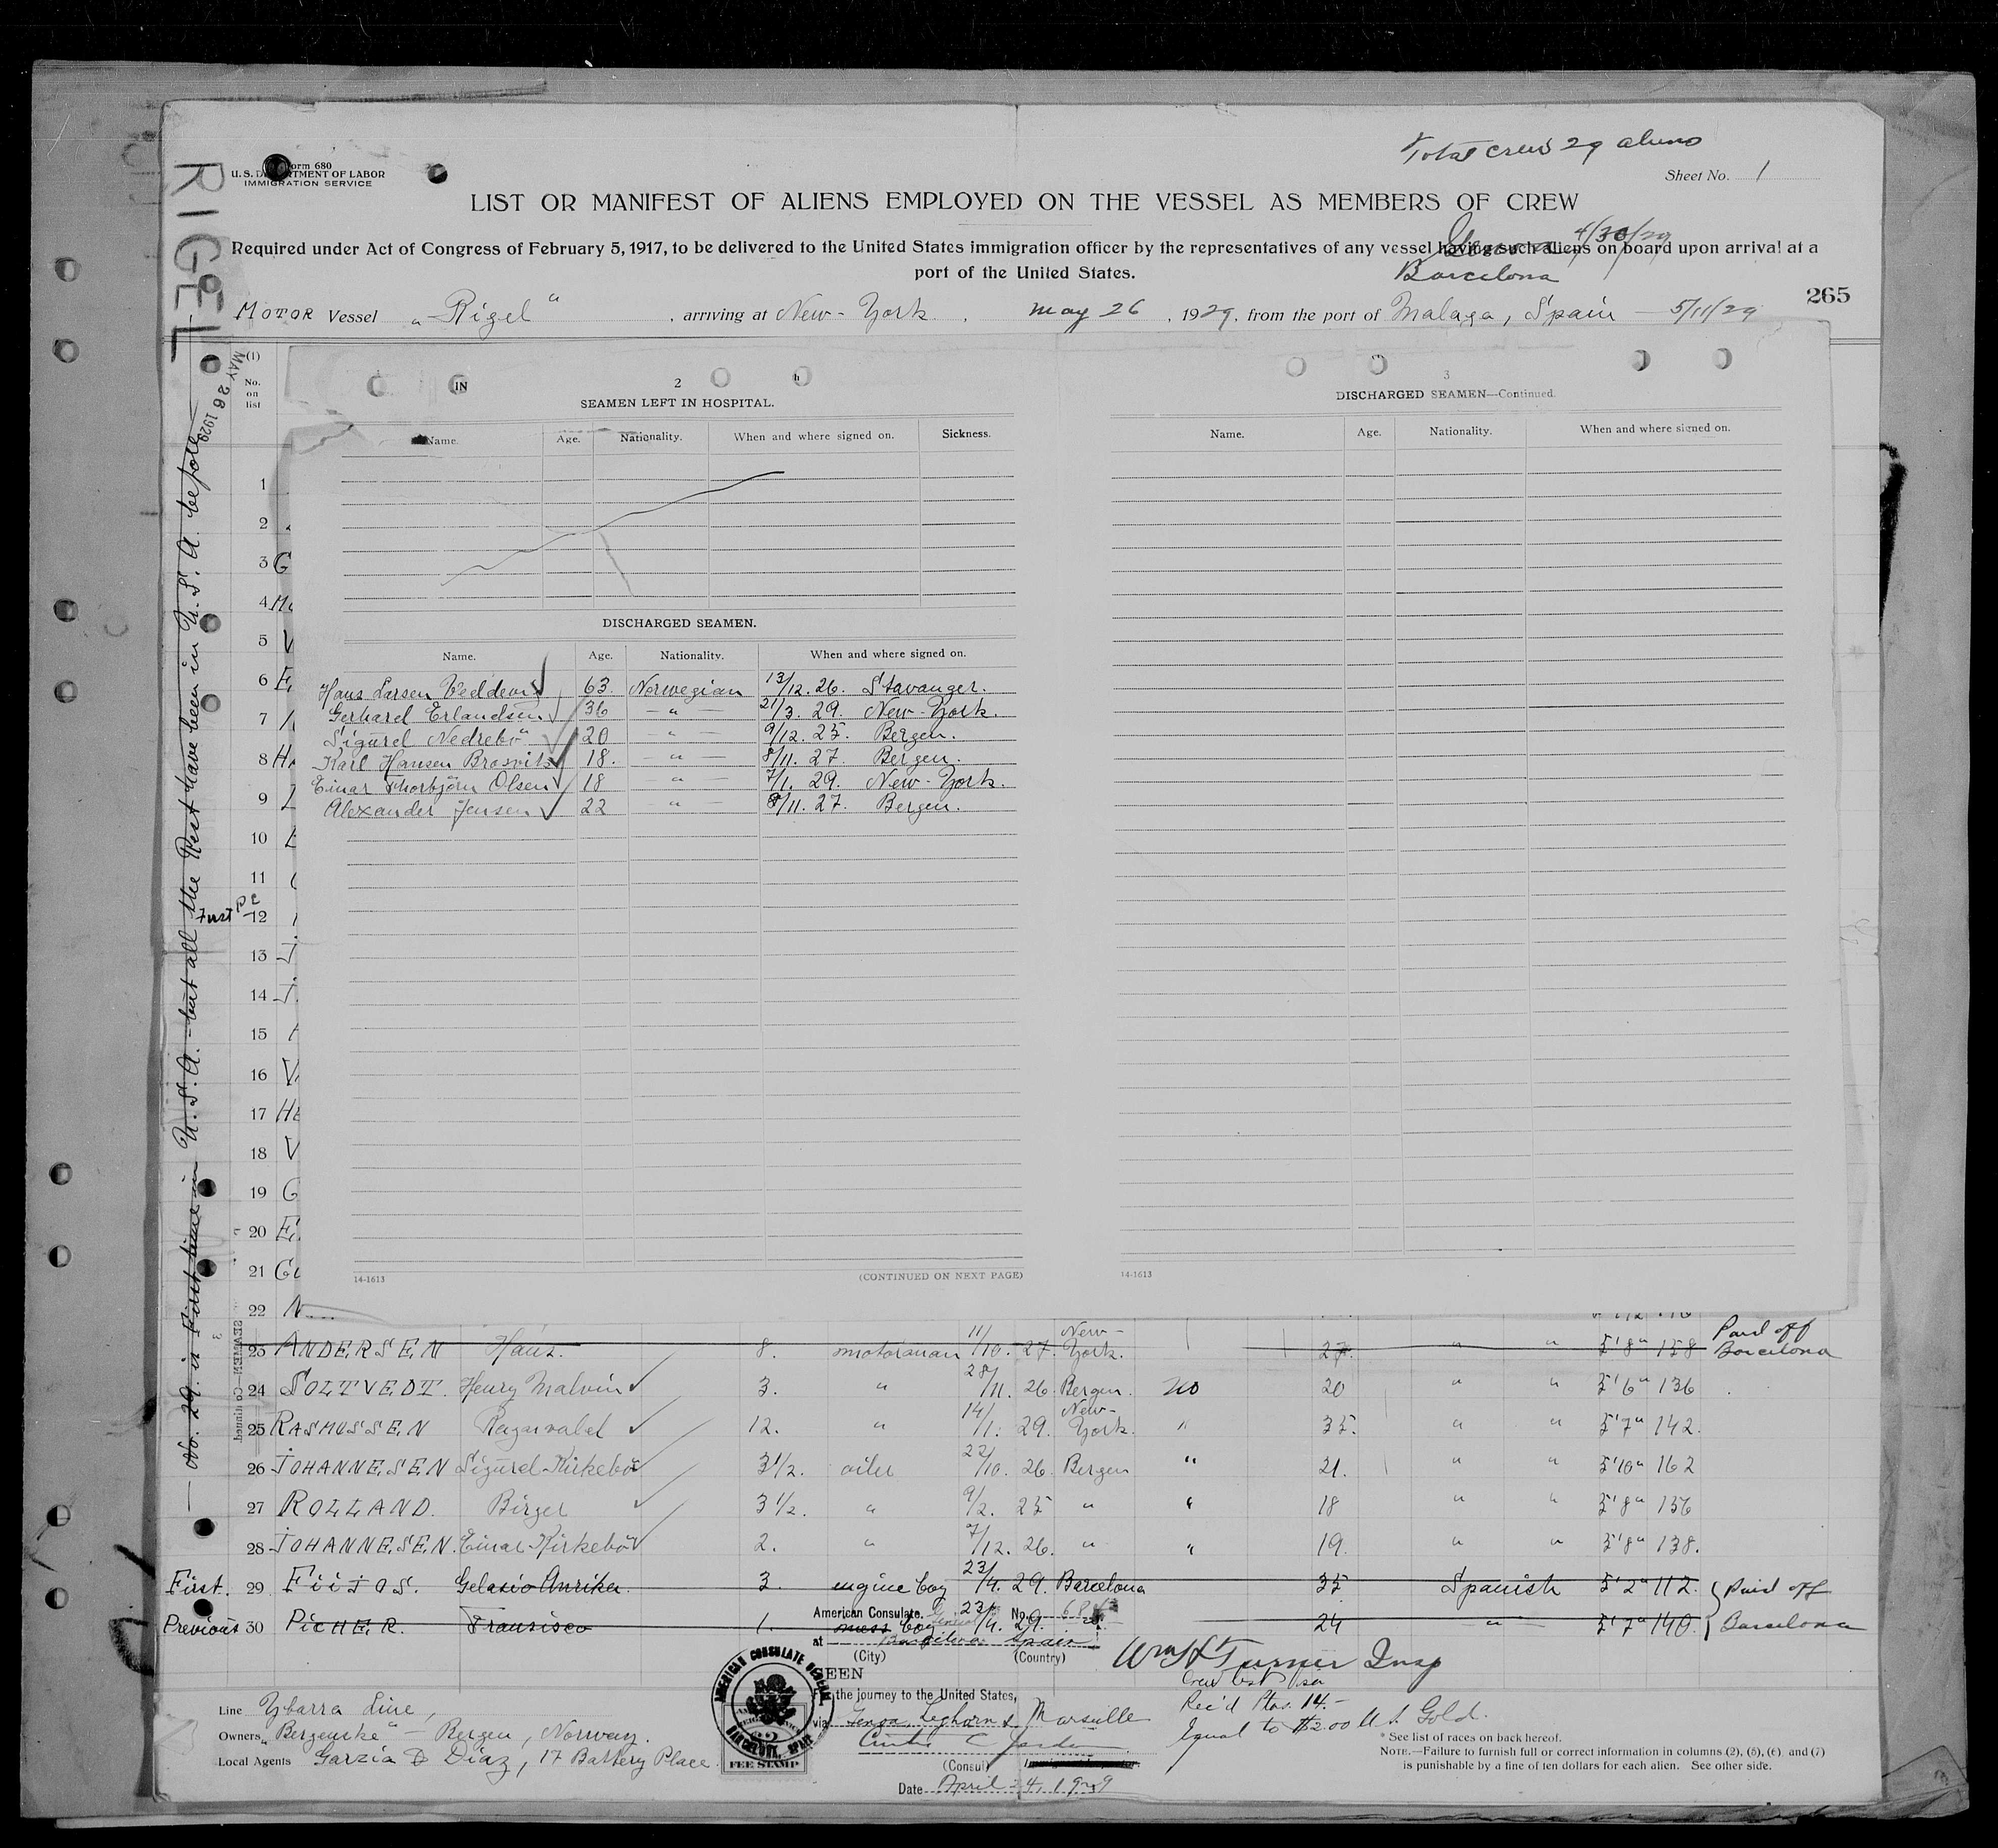 Total crew 29 aliens
Form 680
U. S. DEPARTMENT OF LABOR
IMMIGRATION SERVICE
Sheet No. 1
RIGEL
LIST OR MANIFEST OF ALIENS EMPLOYED ON THE VESSEL AS MEMBERS OF CREW
4/30/29
Required under Act of Congress of February 5, 1917, to be delivered to the United States immigration officer by the representatives of any vessel having such aliens on board upon arrival at a
port of the United States.
Barcelona
265
MOTOR Vessel "Rigel", arriving at New-York, May 26, 1929, from the port of Malaga, Spain - 5/11/29
MAY 26 1929
No. 29 is First time in U.S.A. - but all the Rest have been in U.S.A. before
(1)
No.
on
list
2
SEAMEN LEFT IN HOSPITAL.
Name. Age. Nationality. When and where signed on. Sickness.
DISCHARGED SEAMEN.
Name. Age. Nationality. When and where signed on.
Hans Larsen 63. Norwegian 13/12. 26. Stavanger.
Gerhard Erlandsen 36 — " — 21/3. 29. New-York.
Sigurd Nedrebö 20 — " — 9/12. 25. Bergen.
Karl Hansen 18. — " — 8/11. 27. Bergen.
Einar Thorbjörn Olsen 18 — " — 7/1. 29. New-York.
Alexander Jensen 22 — " — 8/11. 27. Bergen.
14-1613
(CONTINUED ON NEXT PAGE)
3
DISCHARGED SEAMEN—Continued.
Name. Age. Nationality. When and where signed on.
14-1613
1
2
3 G
4
5 V
6 E.
7
8
9
10
11
First 12
13
14
15
16 V
17 HE
18 V
19 G
20 E.
21
22 N
23 ANDERSEN Hans. 8. motorman 11/10. 27. New-York. 27. " " 5'8" 158 Paid off Barcelona
24 SOLTVEDT. Henry Malvin 3. " 28/11. 26. Bergen. no 20 " " 5'6" 136
25 RASMUSSEN Ragnvald 12. " 14/1. 29. New-York. " 35. " " 5'7" 142.
26 JOHANNESEN Sigurd Kirkebö 3 1/2. oiler 22/10. 26. Bergen " 21. " " 5'10" 162
27 ROLLAND. Birger 3 1/2. " 9/2. 25 " " 18 " " 5'8" 156
28 JOHANNESEN. Einar Kirkebö 2. " 7/12. 26. " " 19. " " 5'8" 138.
First. 29 Gelasio 3. engine boy 23/4. 29. Barcelona 35 Spanish 5'2" 112. Paid off
Previous 30 PICHER. Fransisco 1. mess boy 23/4. 29. 24 — " — 5'7" 140. Barcelona
American Consulate. General No.
at Barcelona Spain
(City) (Country)
SEEN
the journey to the United States,
via Genoa, Leghorn & Marseille
(Consul)
Date April 24, 1929
AMERICAN CONSULATE GENERAL
BARCELONA, SPAIN
FEE STAMP
Wm Turner Insp
Crew list visa
Rec'd Ptas. 14.-
Equal to $2.00 U.S. Gold.
Line Ybarra Line,
Owners "Bergenske" - Bergen, Norway.
Local Agents Garzia & Diaz, 17 Battery Place.
* See list of races on back hereof.
NOTE.—Failure to furnish full or correct information in columns (2), (5), (6), and (7)
is punishable by a fine of ten dollars for each alien. See other side.